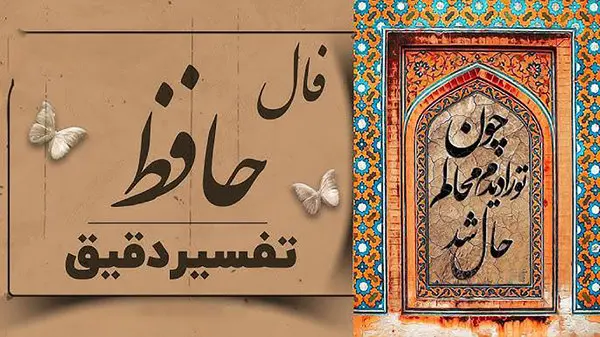 فال
حافظ
تفسیر دقیق
چون
تو را دیدم محالم
حال شد